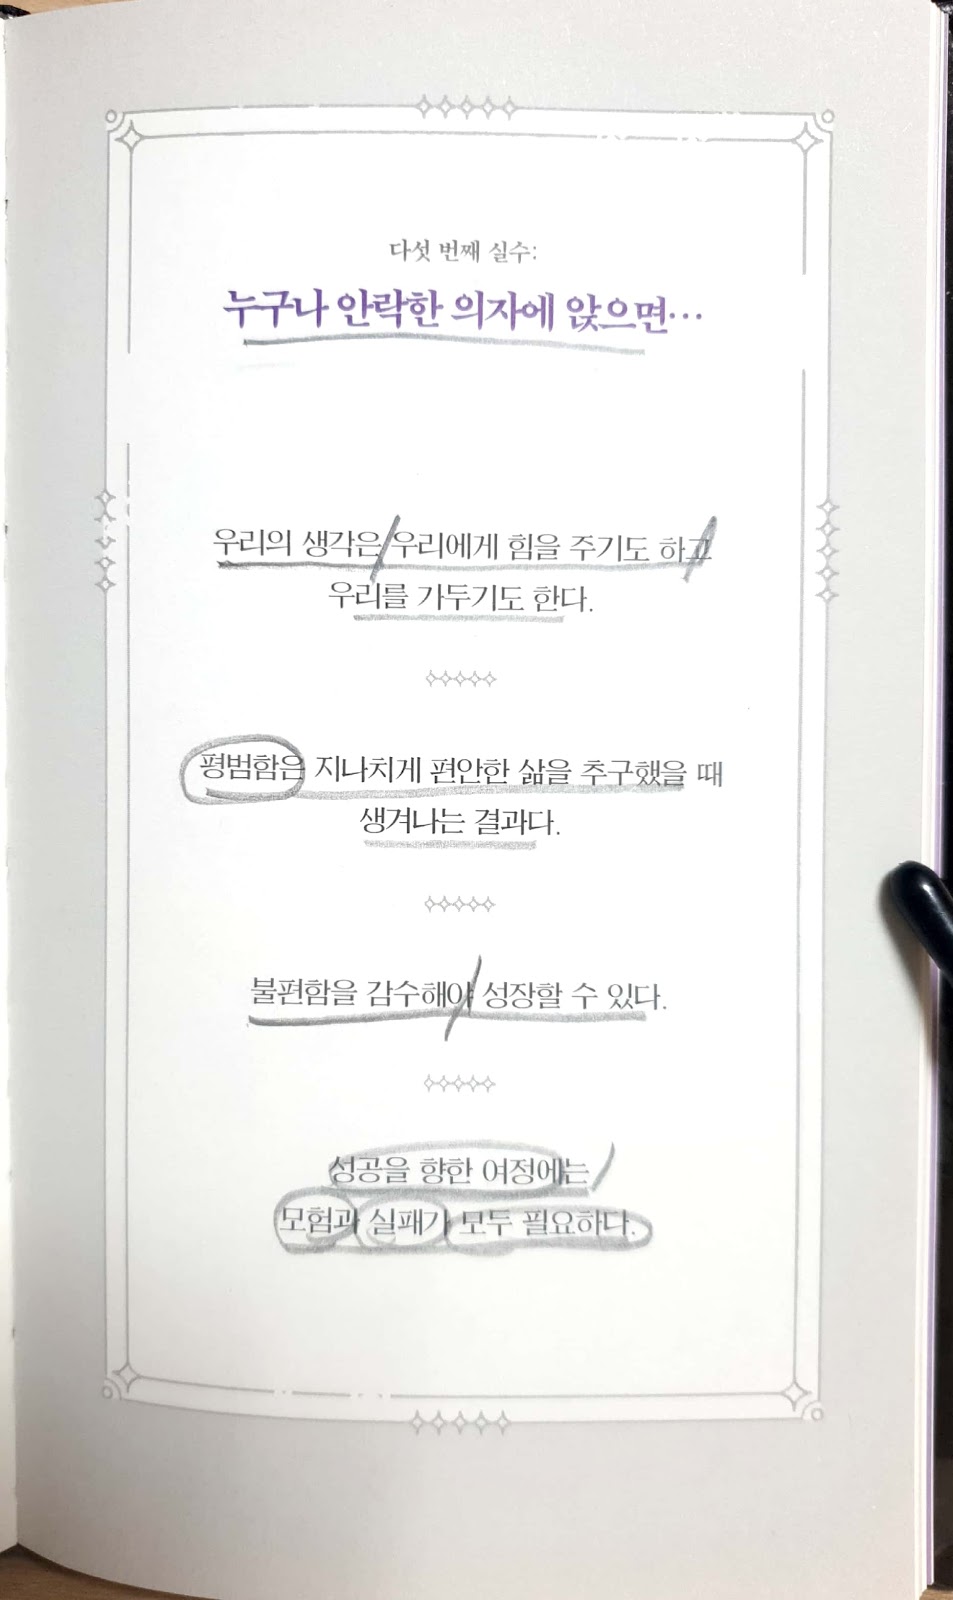 다섯 번째 실수:
누구나 안락한 의자에 앉으면…
우리의 생각은 우리에게 힘을 주기도 하고
우리를 가두기도 한다.
평범함은 지나치게 편안한 삶을 추구했을 때
생겨나는 결과다.
불편함을 감수해야 성장할 수 있다.
성공을 향한 여정에는
모험과 실패가 모두 필요하다.